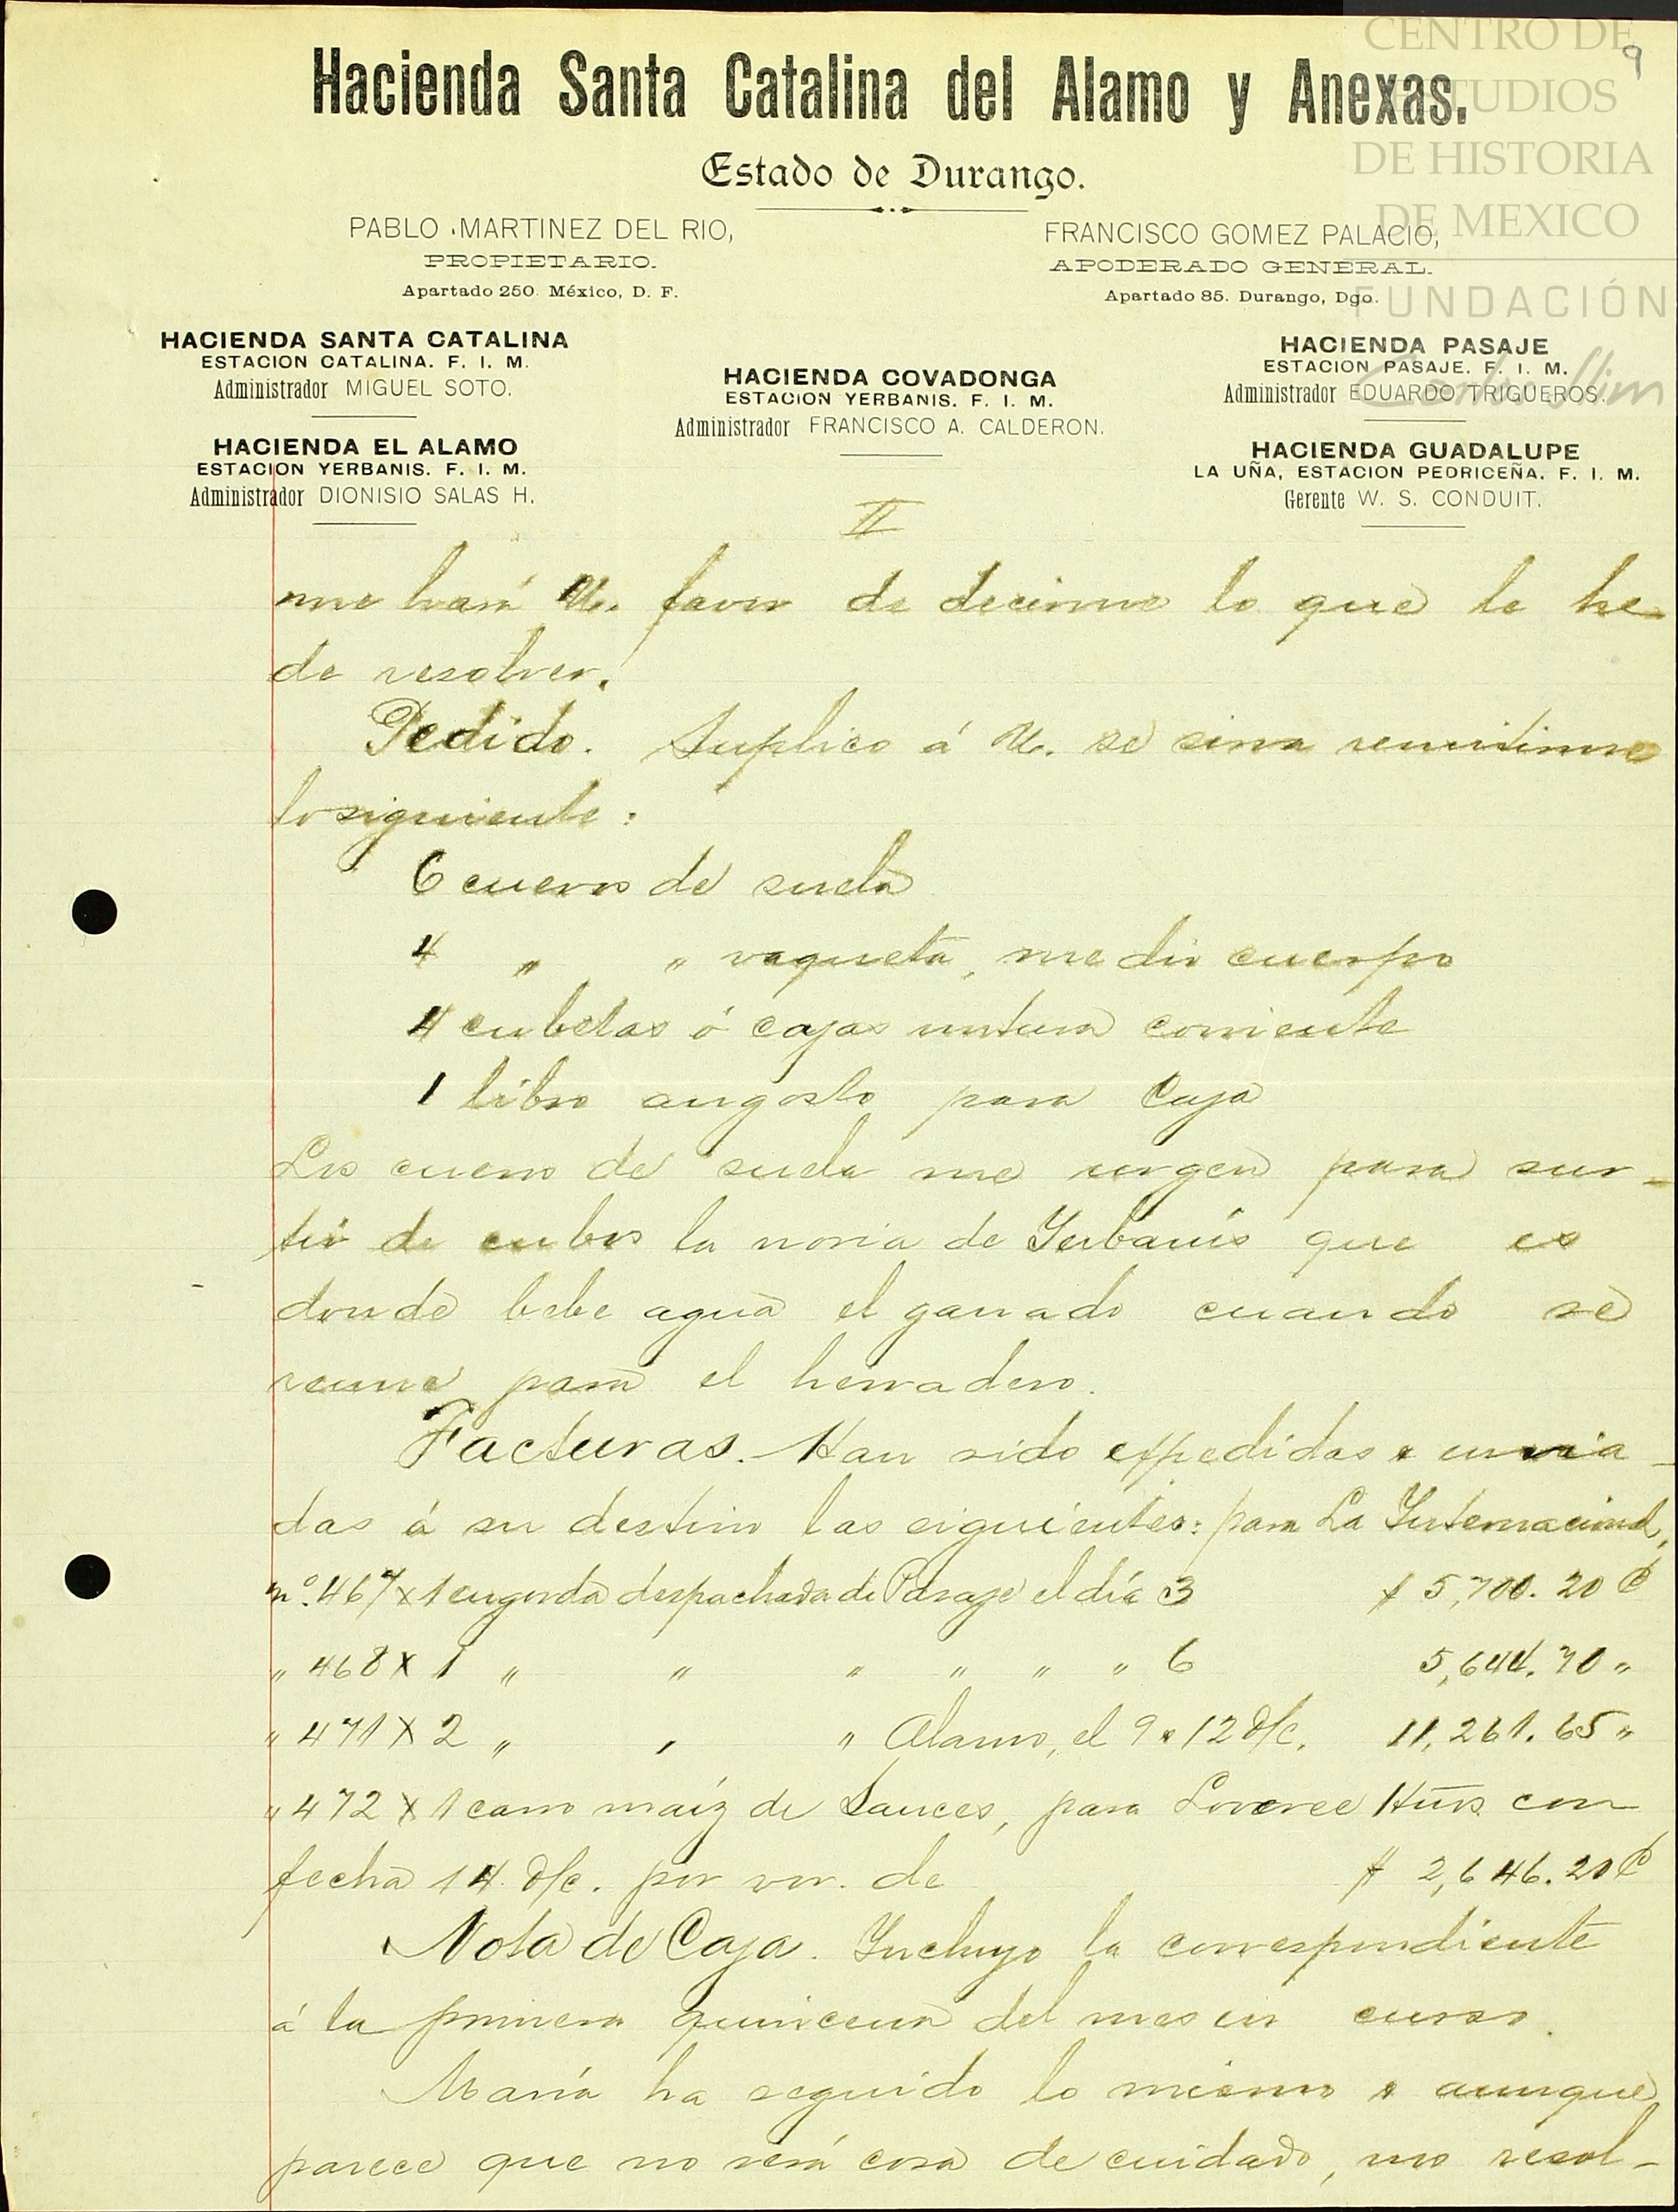 CENTRO DE
ESTUDIOS
DE HISTORIA
DE MEXICO
FUNDACIÓN
Carlos Slim
9
Hacienda Santa Catalina del Alamo y Anexas.
Estado de Durango.
PABLO MARTINEZ DEL RIO,
PROPIETARIO.
Apartado 250. México, D. F.
FRANCISCO GOMEZ PALACIO,
APODERADO GENERAL.
Apartado 85. Durango, Dgo.
HACIENDA SANTA CATALINA
ESTACION CATALINA. F. I. M.
Administrador MIGUEL SOTO.
HACIENDA EL ALAMO
ESTACION YERBANIS. F. I. M.
Administrador DIONISIO SALAS H.
HACIENDA COVADONGA
ESTACION YERBANIS. F. I. M.
Administrador FRANCISCO A. CALDERON.
HACIENDA PASAJE
ESTACION PASAJE. F. I. M.
Administrador EDUARDO TRIGUEROS.
HACIENDA GUADALUPE
LA UÑA, ESTACION PEDRICEÑA. F. I. M.
Gerente W. S. CONDUIT.
II
me hará U. favor de decirme lo que le he
de resolver.
Pedido. Suplico á U. se sirva remitirme
lo siguiente:
6 cueros de suela
4 " " vaqueta, medio cuerpo
4 cubetas ó cajas untura corriente
1 libro angosto para Caja
Los cueros de suela me urgen para sur-
tir de cubos la noria de Yerbanís que es
donde bebe agua el ganado cuando se
reune para el herradero.
Facturas. Han sido expedidas e envia-
das á su destino las siguientes: para La Internacional,
nº. 467 x 1 engorda despachada de Pasaje el día 3 $ 5,700.20 ¢
" 468 x 1 " " " " " " 6 5,644.70 "
" 471 x 2 " " " Alamo, el 9 e 12 d/c. 11,261.65 "
" 472 x 1 carro maíz de Sauces, para Hnos. con
fecha 14 d/c. por vor. de $ 2,646.20 ¢
Nota de Caja. Incluyo la correspondiente
á la primera quincena del mes en curso.
María ha seguido lo mismo e aunque
parece que no será cosa de cuidado, me resol-